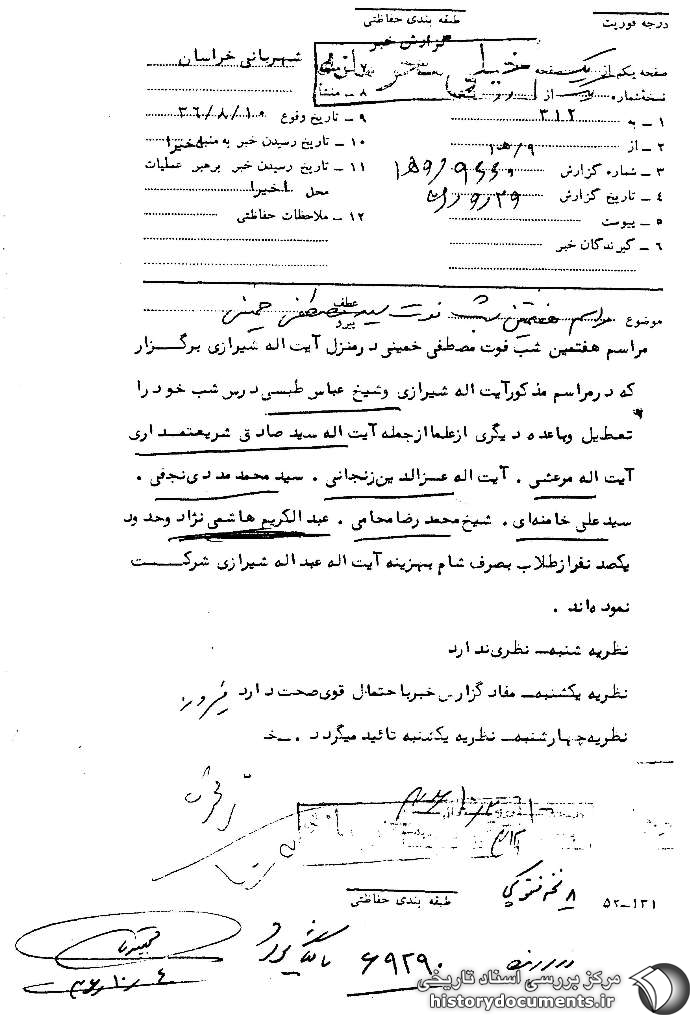 درجه فوریت
طبقه بندی حفاظتی
گزارش خبر
شهربانی خراسان
خیلی محرمانه
صفحه یکم از یک صفحه
نسخه شماره از نسخه
۷ - منبع
۸ - منشأ
۱ - به ۳۱۲
۲ - از ۹/ه۱
۳ - شماره گزارش
۴ - تاریخ گزارش
۵ - پیوست
۶ - گیرندگان خبر
۹ - تاریخ وقوع ۳۶/۸/۱۰
۱۰ - تاریخ رسیدن خبر به منبع اخیرا
۱۱ - تاریخ رسیدن خبر برهبر عملیات
محل اخیرا
۱۲ - ملاحظات حفاظتی
عطف
پیرو
موضوع مراسم هفتمین شب فوت سید مصطفی خمینی
مراسم هفتمین شب فوت مصطفی خمینی درمنزل آیت اله شیرازی برگزار
که درمراسم مذکورآیت اله شیرازی وشیخ عباس طبسی درس شب خود را
تعطیل وباعده دیگری ازعلماازجمله آیت اله سید صادق شریعتمداری
آیت اله مرعشی . آیت اله عزالدین زنجانی . سید محمد مددی نجفی .
سیدعلی خامنه‌ای . شیخ محمد رضا محامی . عبدالکریم هاشمی نژاد وحدود
یکصد نفرازطلاب بصرف شام بهزینه آیت اله عبداله شیرازی شرکت
نموده‌اند .
نظریه شنبه - نظری ندارد
نظریه یکشنبه - مفاد گزارش خبربااحتمال قوی صحت دارد
نظریه چهارشنبه - نظریه یکشنبه تائید میگردد . خ
۸ نسخه فتوکپی
طبقه بندی حفاظتی
۵۲-۱۳۱
بایگانی شود
۶۹۲۹۰
مرکز بررسی اسناد تاریخی
historydocuments.ir